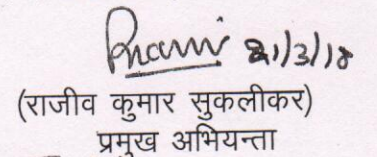 21/3/18
(राजीव कुमार सुकलीकर)
प्रमुख अभियन्ता